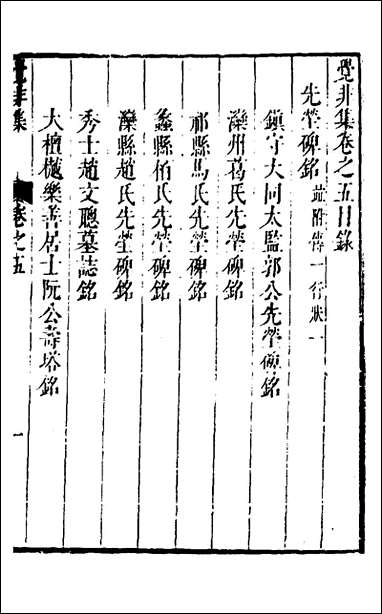 覺非集卷之五目錄
先塋碑銘 誌附傳一行狀一
鎮守大同太監郭公先塋碑銘
灤州葛氏先塋碑銘
祁縣馬氏先塋碑銘
蠡縣栢氏先塋碑銘
灤縣趙氏先塋碑銘
秀士趙文聰墓誌銘
大檀樾樂善居士阮公壽塔銘
覺非集
卷之五
一